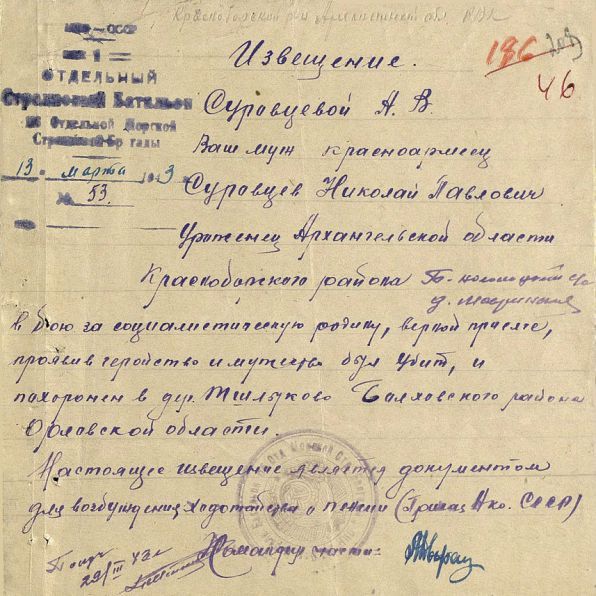 Извещение.
186
46
НКО - СССР
1
ОТДЕЛЬНЫЙ
Стрелковый Батальон
Отдельной Морской
Стрелковой Бригады
13 марта 1943 г
№ 53.
Суровцевой А. В.
Ваш муж красноармеец
Суровцев Николай Павлович
Уроженец Архангельской области
Красноборского района
в бою за социалистическую родину, верной присяге,
проявив геройство и мужество был убит, и
похоронен в дер. Жильково Болховского района
Орловской области.
Настоящее извещение является документом
для возбуждения ходотайства о пенсии (Приказ Нко. СССР)
Командир части:
29/III 43 г.